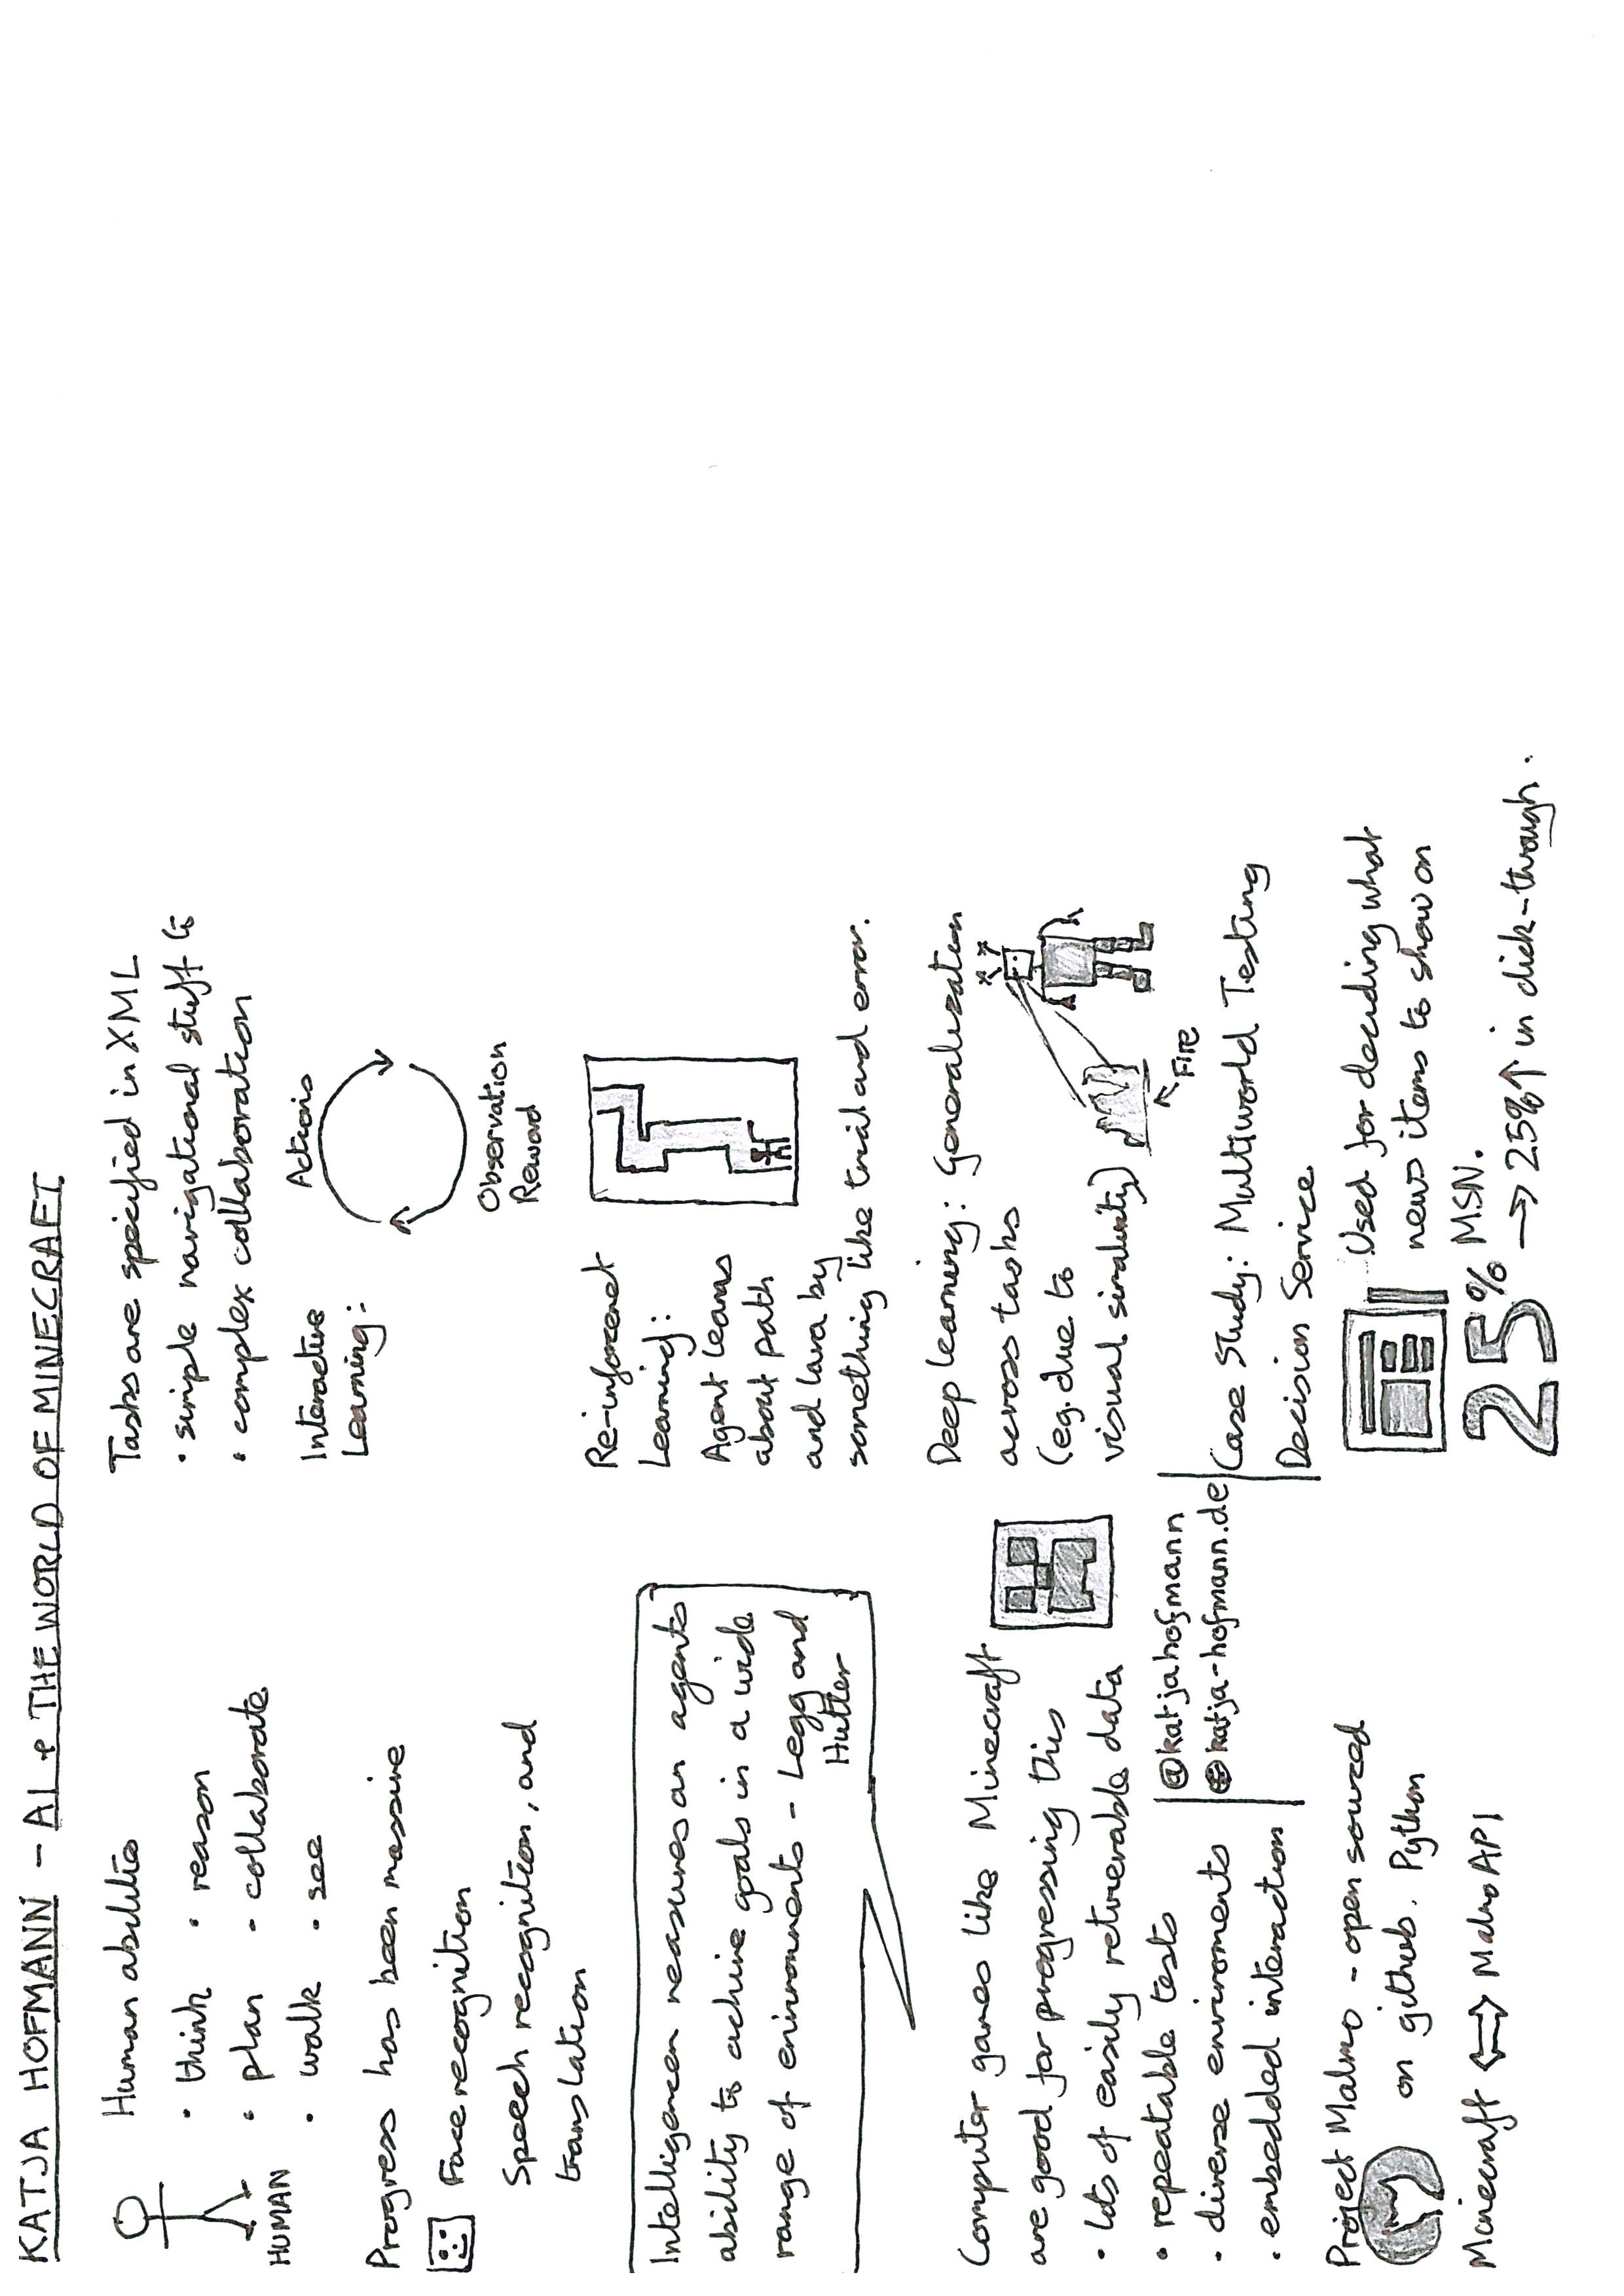 KATJA HOFMANN - AI + THE WORLD OF MINECRAFT
Human abilities
• think • reason
• plan • collaborate
• walk • see
HUMAN
Progress has been massive
Face recognition
Speech recognition, and
translation
Intelligencen measures an agents
ability to achieve goals in a wide
range of environments - Legg and
Hutter
Computer games like Minecraft
are good for progressing this
• lots of easily retrievable data
• repeatable tests
• diverse environments
• embedded interaction
@katjahofmann
katja-hofmann.de
Project Malmo - open sourced
on github. Python
Minecraft ⟺ Malmo API
Tasks are specified in XML
• simple navigational stuff to
• complex collaboration
Interactive
Learning:
Actions
Observation
Reward
Re-inforcement
Learning:
Agent learns
about path
and lava by
something like trial and error.
Deep learning: Generalization
across tasks
(eg. due to
visual similarity)
Fire
Case Study: Multiworld Testing
Decision Service
Used for deciding what
news items to show on
MSN.
25%
→ 25% ↑ in click-through.